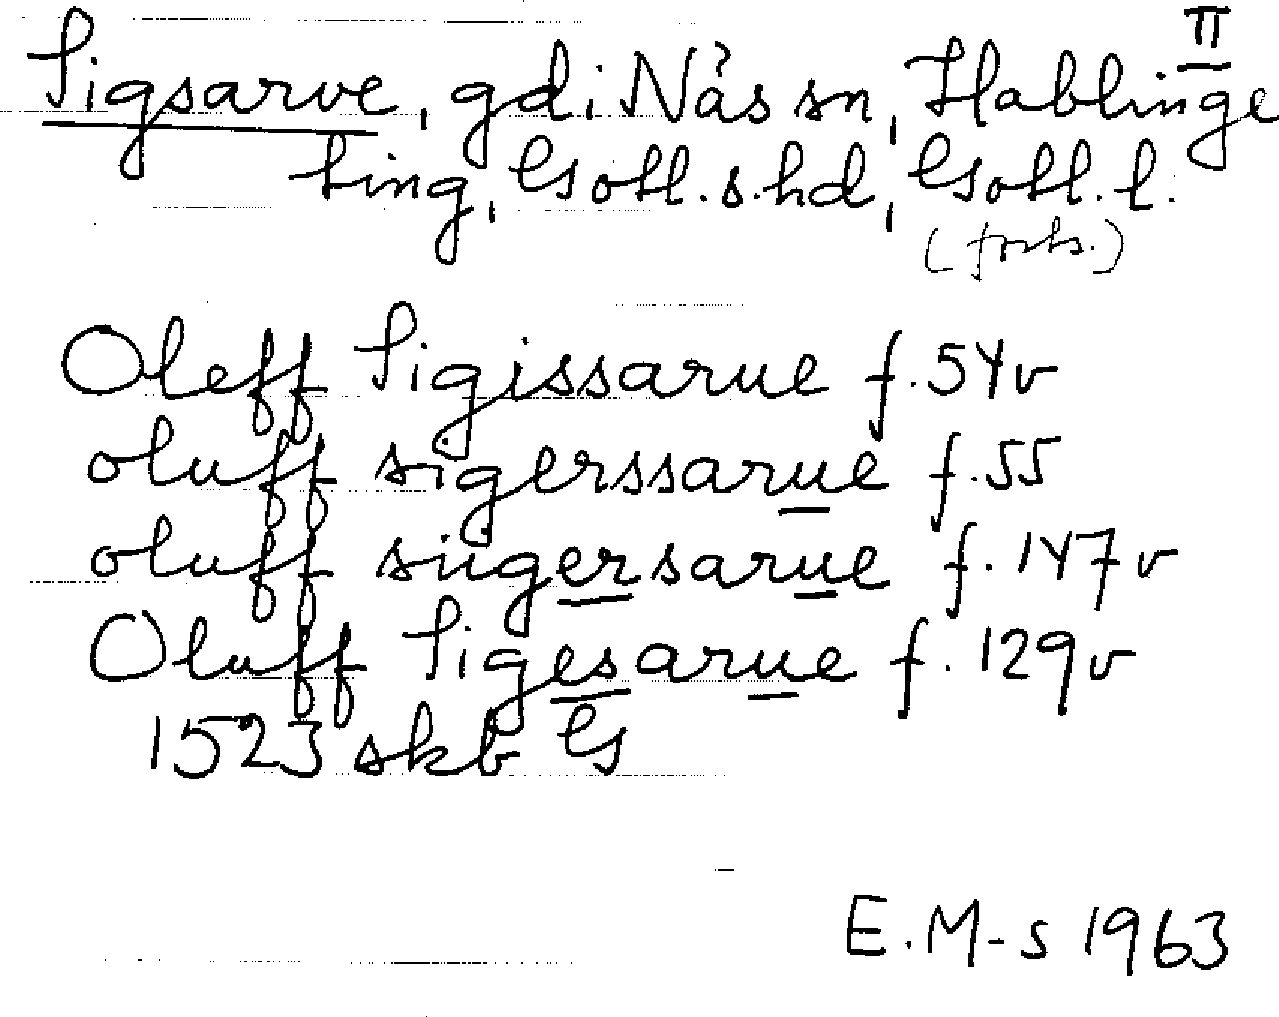 II
Sigsarve, gd i Näs sn, Hablinge
ting, Gotl. s. hd, Gotl. l.
(forts.)
Oleff Sigissarue f. 54v
oluff sigerssarue f. 55
oluff siigersarue f. 147v
Oluff Sigesarue f. 129v
1523 skb G
E. M-s 1963